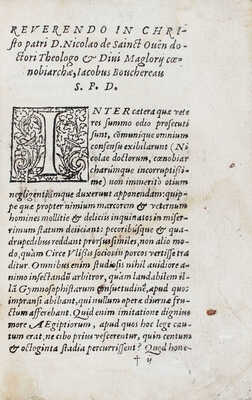 REVERENDO IN CHRI
sto patri D. Nicolao de Sainct Ouën do-
ctori Theologo & Divi Maglory cœ-
nobiarchæ, Iacobus Bouchereau
S. P. D.
INTER cætera quæ vete
res summo odio prosecuti
sunt, cõmunique omnium
consensu exibilarunt (Ni
colae doctorum, cœnobiar
charumque incorruptissi-
me) non immeritò otium
negligentiámque duxerunt appendam: quip-
pe quæ propter nimium marcorem & veternum
homines mollitie & deliciis inquinatos in miser-
rimum statum deiiciant: pecoribúsque & qua-
drupedibus reddant prorsus similes, non alio mo-
do, quàm Circe Vlissis socios in porcos vertisse tra
ditur. Omnibus enim studiosis nihil auidiore a-
nimo insectandũ arbitror, quàm laudabilem il-
lã Gymnosophistarum consuetudinẽ, apud quos
impransi abibant, qui nullum opere diurnæ fru-
ctum afferebant. Quid enim imitatione dignius
more AEgiptiorum, apud quos hoc loge cau-
tum erat, ne cibo prius vescerentur, quin centum
& octoginta stadia percurrissent? Quid hone-
† ij